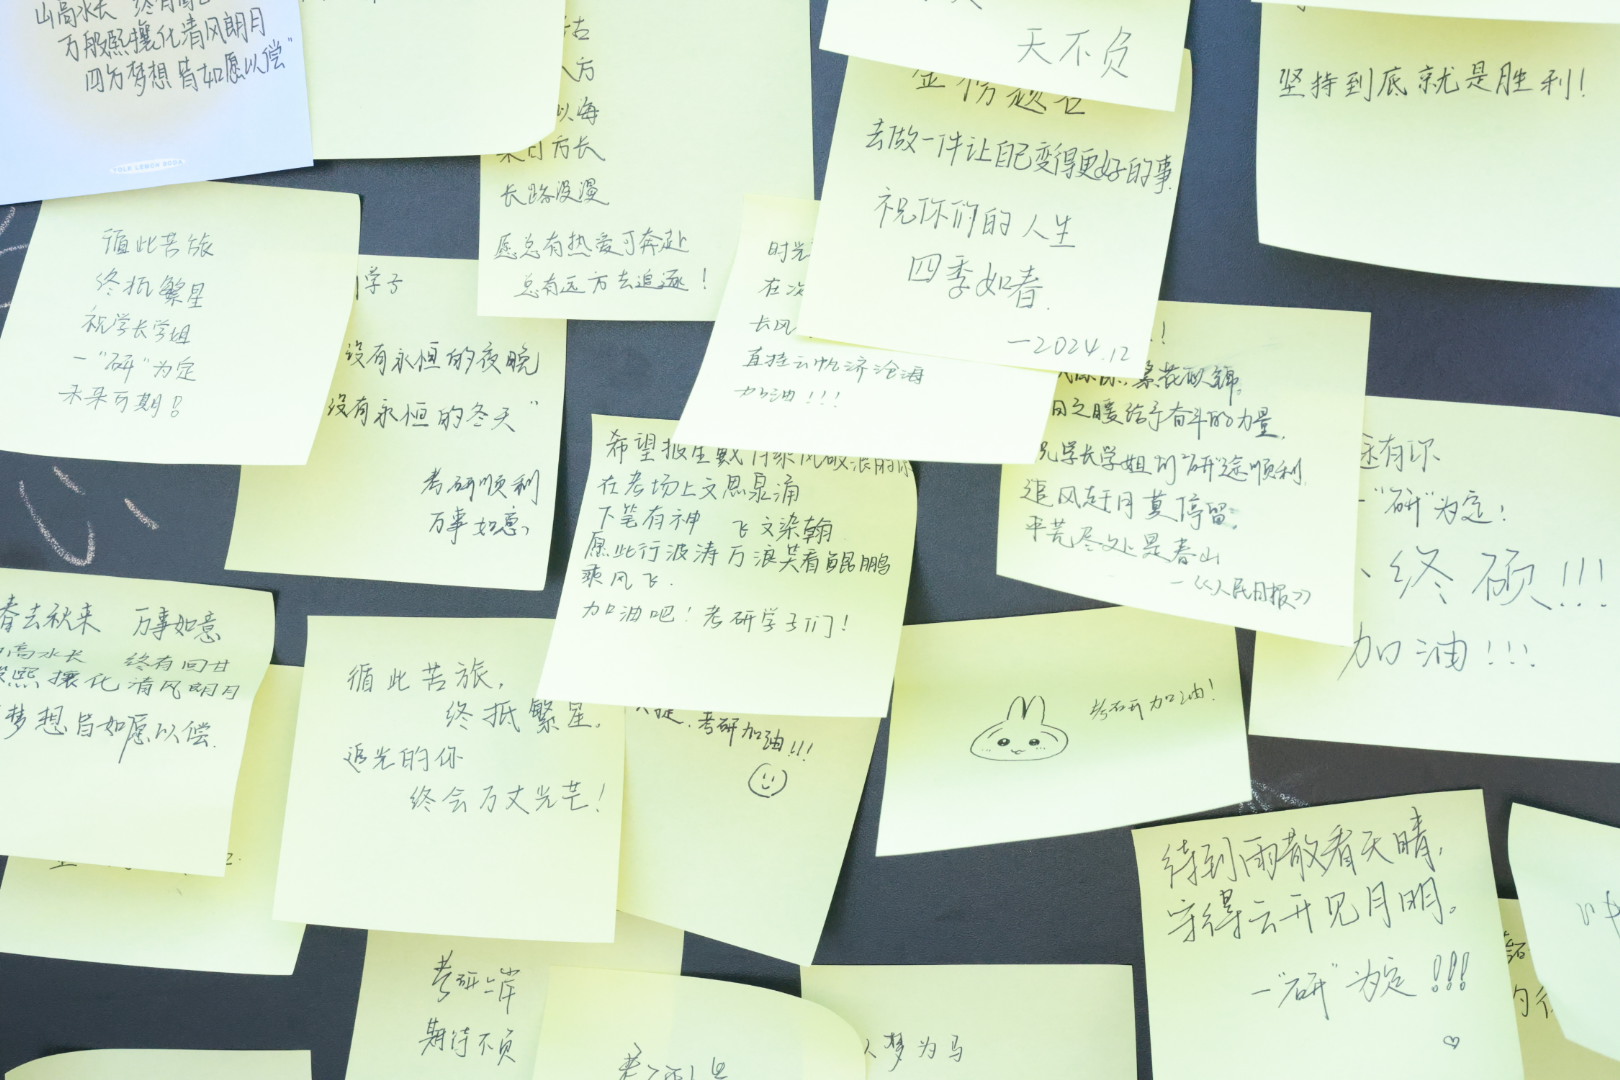 山高水长 终有回
万般熙攘化清风朗月
四方梦想皆如愿以偿"
方
以海
来日方长
长路漫漫
愿总有热爱可奔赴
总有远方去追逐!
天不负
金榜题名
去做一件让自己变得更好的事.
祝你们的人生
四季如春.
—2024.12
坚持到底就是胜利!
循此苦旅
终抵繁星
祝学长学姐
一"研"为定
未来可期!
学子
没有永恒的夜晚
没有永恒的冬天"
考研顺利
万事如意
时光
在次
长风
直挂云帆济沧海
加油!!!
繁花似锦。
日之暖给予奋斗的力量,
祝学长学姐们"研"途顺利
追风赶月莫停留。
平芜尽处是春山
—《人民日报》
还有你
一"研"为定!
终硕!!!
加油!!!
希望报生戴月乘风破浪的你
在考场上文思泉涌
下笔有神 飞文染翰
愿此行波涛万浪笑看鲲鹏
乘风飞.
加油吧!考研学子们!
春去秋来 万事如意
山高水长 终有回甘
熙攘化清风朗月
梦想皆如愿以偿.
循此苦旅,
终抵繁星,
追光的你
终会万丈光芒!
考研加油!!!
考研加油!
待到雨散看天晴,
守得云开见月明。
一"研"为定!!!
考研上岸
期待不负
梦为马